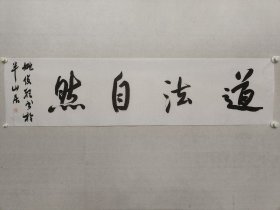 道法自然
姚俊卿书于
半山居